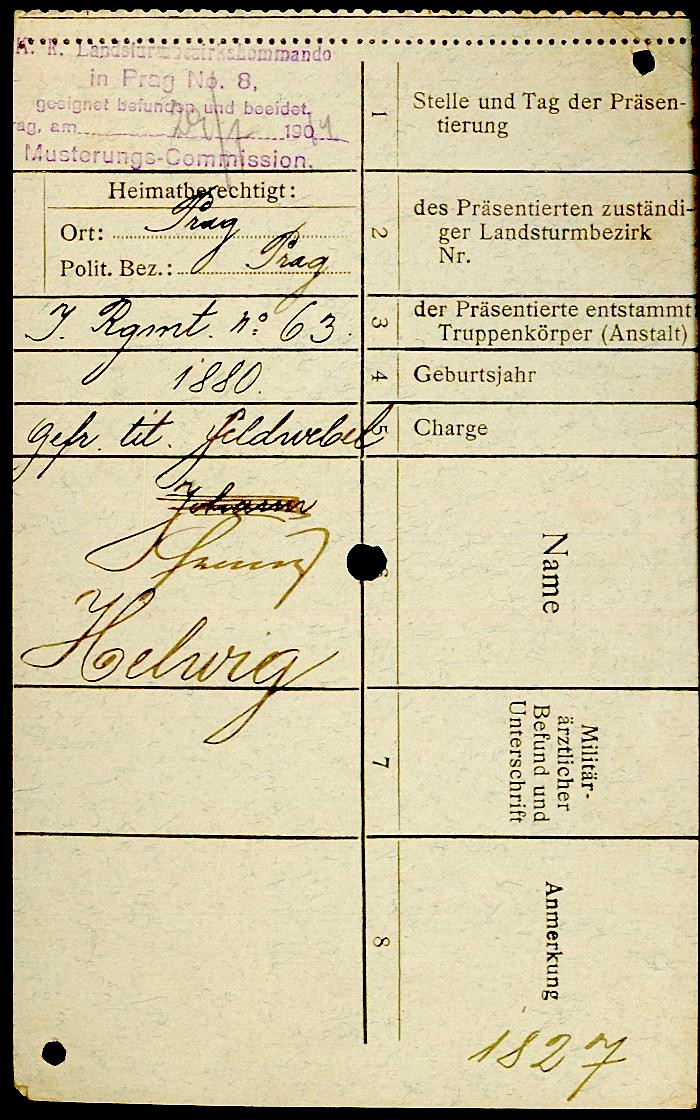 K. K. Landsturmbezirkskommando
in Prag No. 8,
geeignet befunden und beeidet,
ag, am 190
Musterungs-Commission.
1
Stelle und Tag der Präsen-
tierung
Heimatberechtigt:
Ort: Prag
Polit. Bez.: Prag
2
des Präsentierten zuständi-
ger Landsturmbezirk
Nr.
J. Rgmt. No 63.
3
der Präsentierte entstammt
Truppenkörper (Anstalt)
1880.
4
Geburtsjahr
Gefr. tit. Feldwebel
5
Charge
Johann
Helwig
6
Name
7
Militär-
ärztlicher
Befund und
Unterschrift
8
Anmerkung
1827